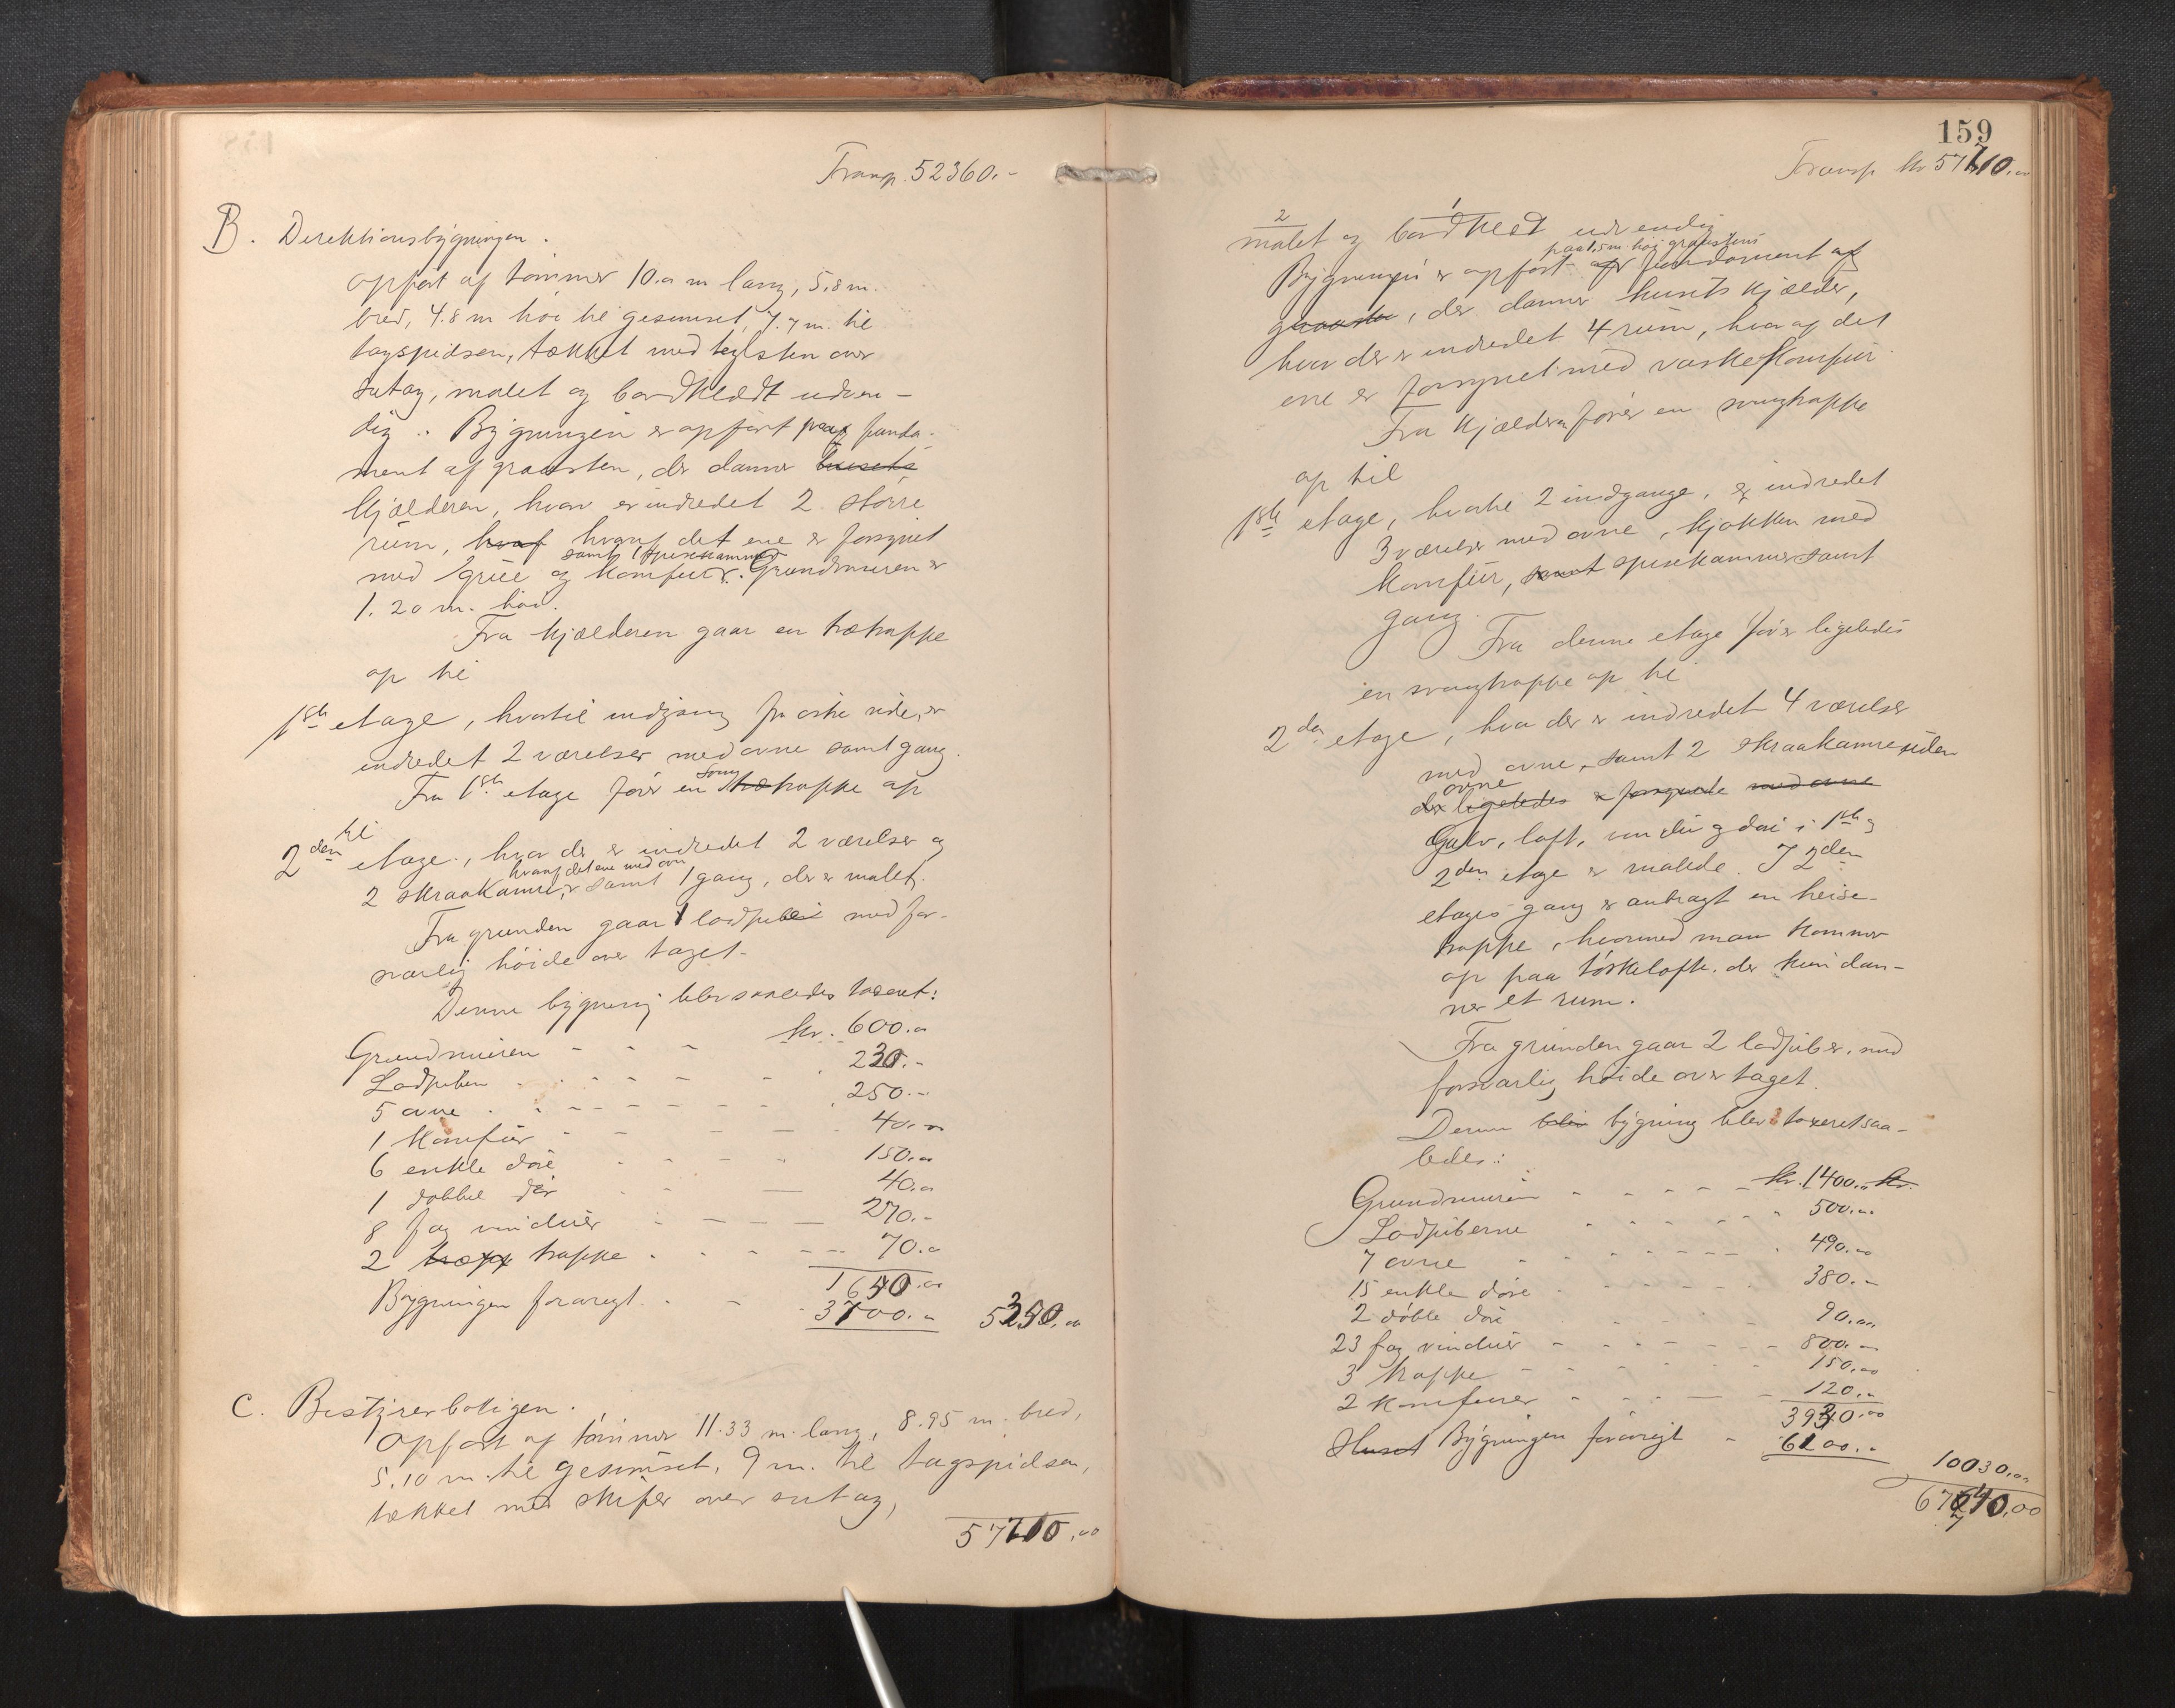 Transp. 52360.-
B. Direktionsbygningen.
Opført af tømmer 10.0 m lang, 5.8 m.
bred, 4.8 m høi til gesimset, 7.7 m. til
tagspidsen, tækket med teglsten over
sutag, malet og bordklædt udven-
dig. Bygningen er opført paa funda-
ment af graasten, der danner husets
kjælderen, hvor er indredet 2 større
rum, hvaf hvoraf det ene er forsynet
samt 1 spisekammer
med 1 grue og komfur. Grundmuren er
1.20 m. høi.
Fra kjælderen gaar en trætrappe
op til
1ste etage, hvortil indgang fra østre side, er
indredet 2 værelser med ovne samt gang.
Fra 1ste etage fører en sving trætrappe op
til
2den etage, hvor der er indredet 2 værelser og
hvoraf det ene med ovn
2 skraakamre, samt 1 gang, der er malet.
Fra grunden gaar 1 lodpibe med for-
svarlig høide over taget.
Denne bygning blev saaledes taxeret:
Grundmuren - - - kr. 600.00
Lodpiben - - - 230.-
5 ovne - - - 250.-
1 komfur - - - 40.00
6 enkle døre - - - 150.00
1 dobbel dør - - - 40.00
8 fag vinduer - - - 270.-
2 trapp trappe - - - 70.00
1650.00
Bygningen forøvrigt - - 3700.- 5350.00
C. Bestyrerboligen.
Opført af tømmer 11.33 m. lang, 8.95 m. bred,
5.10 m. til gesimset, 9 m. til tagspidsen,
tækket med skifer over sutag,
57710.00
159
Transp. kr 57710.00
2 1
malet og bordklædt udvendig
paa 1.5 m. høi graastens
Bygningen er opført af fundament af
graasten, der danner husets kjælder,
hvor der er indredet 4 rum, hvoraf det
ene er forsynet med vaskekomfur
Fra kjælderen fører en svingtrappe
op til
1ste etage, hvortil 2 indgange, er indredet
3 værelser med ovne, kjøkken med
komfur, samt spisekammer samt
gang.
Fra denne etage fører ligeledes
en svingtrappe op til
2den etage, hvor der er indredet 4 værelser
med ovne, samt 2 skraakamre uden
ovne
der ligeledes er forsynede med ovne
Gulv, loft, vinduer og døre i 1ste og
2den etage er malede. I 2den
etages gang er anbragt en heise-
trappe, hvormed man kommer
op paa tørkeloftet, der kun dan-
ner et rum.
Fra grunden gaar 2 lodpiber, med
forsvarlig høide over taget.
Denne blev bygning blev taxeret saa-
ledes:
Grundmuren - - - kr. 1400.00 kr.
Lodpiberne - - - 500.00
7 ovne - - - 490.00
15 enkle døre - - - 380.-
2 doble døre - - - 90.00
23 fag vinduer - - - 800.-
3 trappe - - - 150.00
2 komfurer - - - 120.-
3930.00
Huset Bygningen forøvrigt - 6100.-
10030.00
67740.00